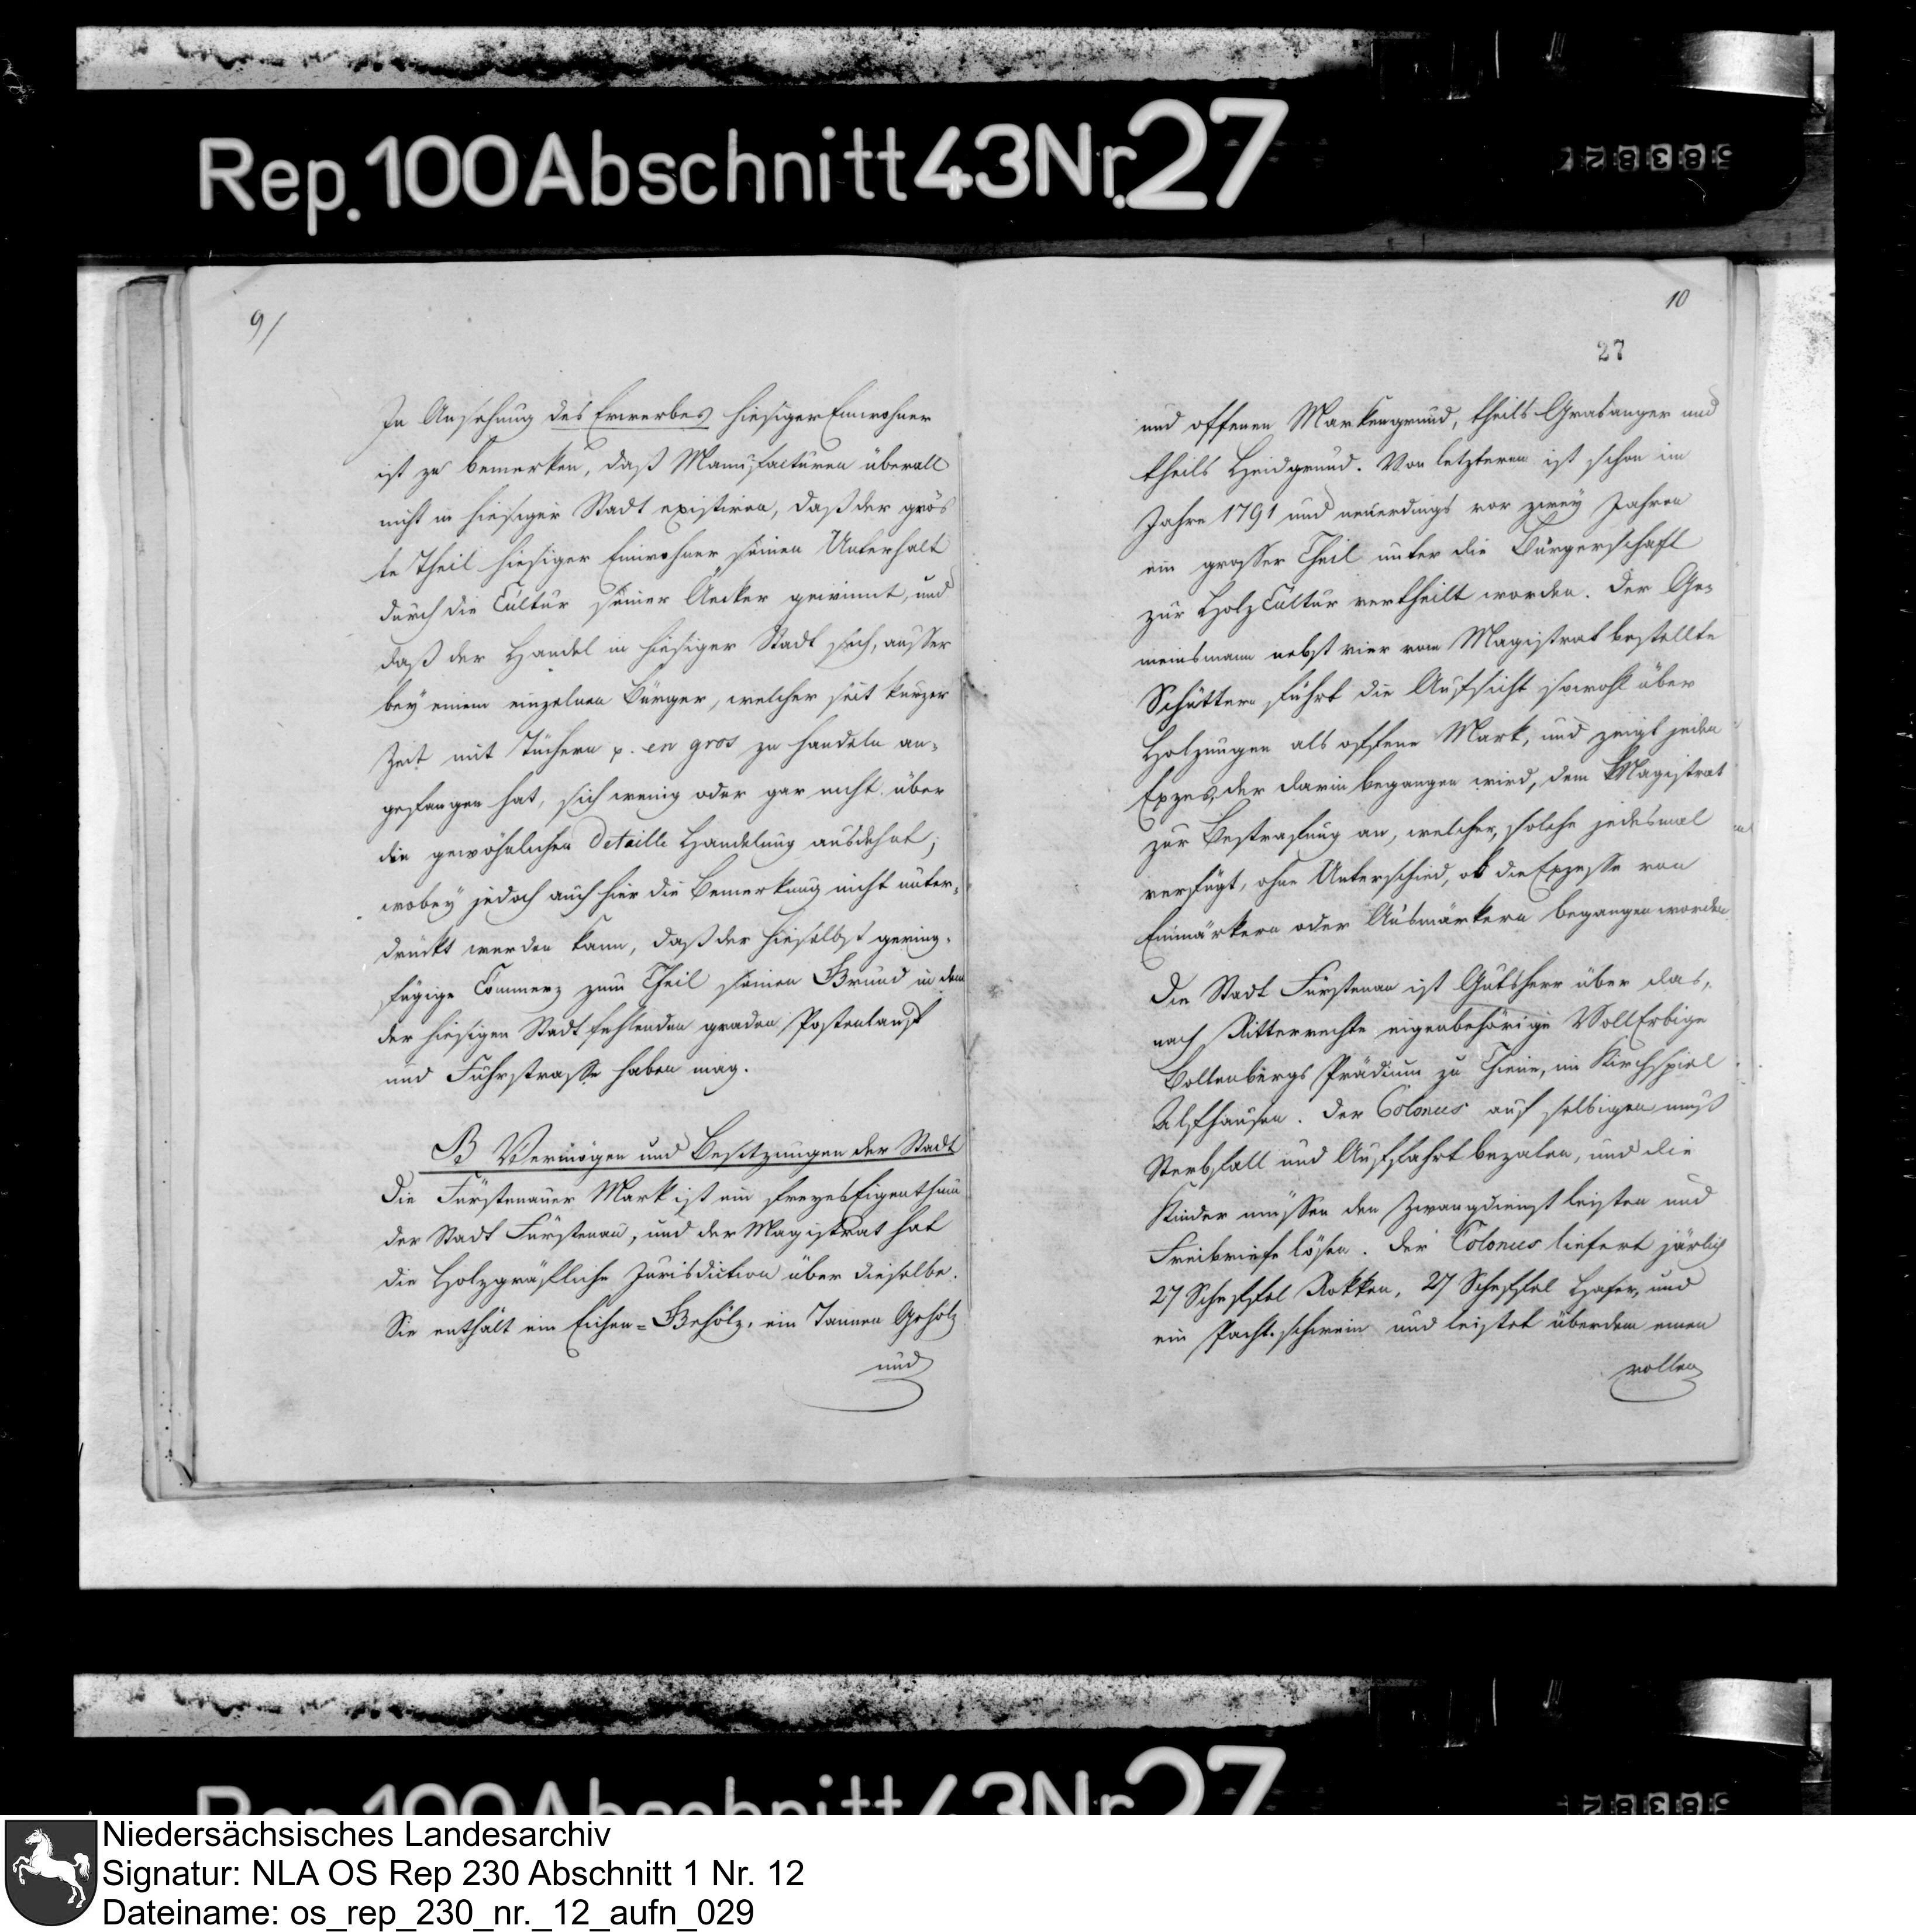 Rep. 100 Abschnitt 43 Nr. 27
9/
In Ansehung des Erwerbes hiesiger Einwohner
ist zu bemerken, daß Manufacturen überall
nicht in hiesiger Stadt existiren, daß der grös
te Theil hiesiger Einwohner seinen Unterhalt
durch die Cultur seiner Aecker gewinnt, und
daß der Handel in hiesiger Stadt sich, ausser
bey einem einzelnen Bürger, welcher seit kurzer
Zeit mit Tüchern p. en gros zu handeln an-
gefangen hat, sich wenig oder gar nicht über
die gewöhnlichen Detaille Handelung ausdehnt;
wobey jedoch auch hier die Bemerkung nicht unter-
drückt werden kann, daß der hieselbst gering-
fügige Commerz zum Theil seinen Grund in dem
der hiesigen Stadt fehlenden graden Postenlauf
und Fuhrstrasse haben mag.
B Vermögen und Besitzungen der Stadt
Die Fürstenauer Mark ist ein freyes Eigenthum
der Stadt Fürstenau, und der Magistrat hat
die Holzgräfliche Jurisdiction über dieselbe.
Sie enthält ein Eichen-Gehölz, ein Tannen Gehölz
und
10
27
und offenen Markengrund, theils Grasanger und
theils Heidgrund. Von letzteren ist schon im
Jahre 1791 und neuerdings vor zwey Jahren
ein grosser Theil unter die Bürgerschaft
zur HolzCultur vertheilt worden. Der Ge-
meinsmann nebst vier vom Magistrat bestellte
Schüttern führt die Aufsicht sowohl über
Holzungen als offene Mark, und zeigt jeden
Exzes, der darin begangen wird, dem Magistrat
zur Bestrafung an, welcher, solche jedesmal
verfügt, ohne Unterschied, ob die Exzesse von
Einmärkern oder Ausmärkern begangen worden.
Die Stadt Fürstenau ist Gutsherr über das,
nach Ritterrechte eigenbehörige VollErbige
Bollenbergs Prädium zu Thiene, im Kirchspiel
Alfhausen. Der Colonus auf selbigen muß
Sterbfall und Auffahrt bezalen, und die
Kinder müssen den Zwangdienst leisten und
Freibriefe lösen. Der Colonus liefert järlich
27 Scheffel Rokken, 27 Scheffel Hafer, und
ein Pacht-schwein und leistet überdem einen
vollen
Niedersächsisches Landesarchiv
Signatur: NLA OS Rep 230 Abschnitt 1 Nr. 12
Dateiname: os_rep_230_nr._12_aufn_029